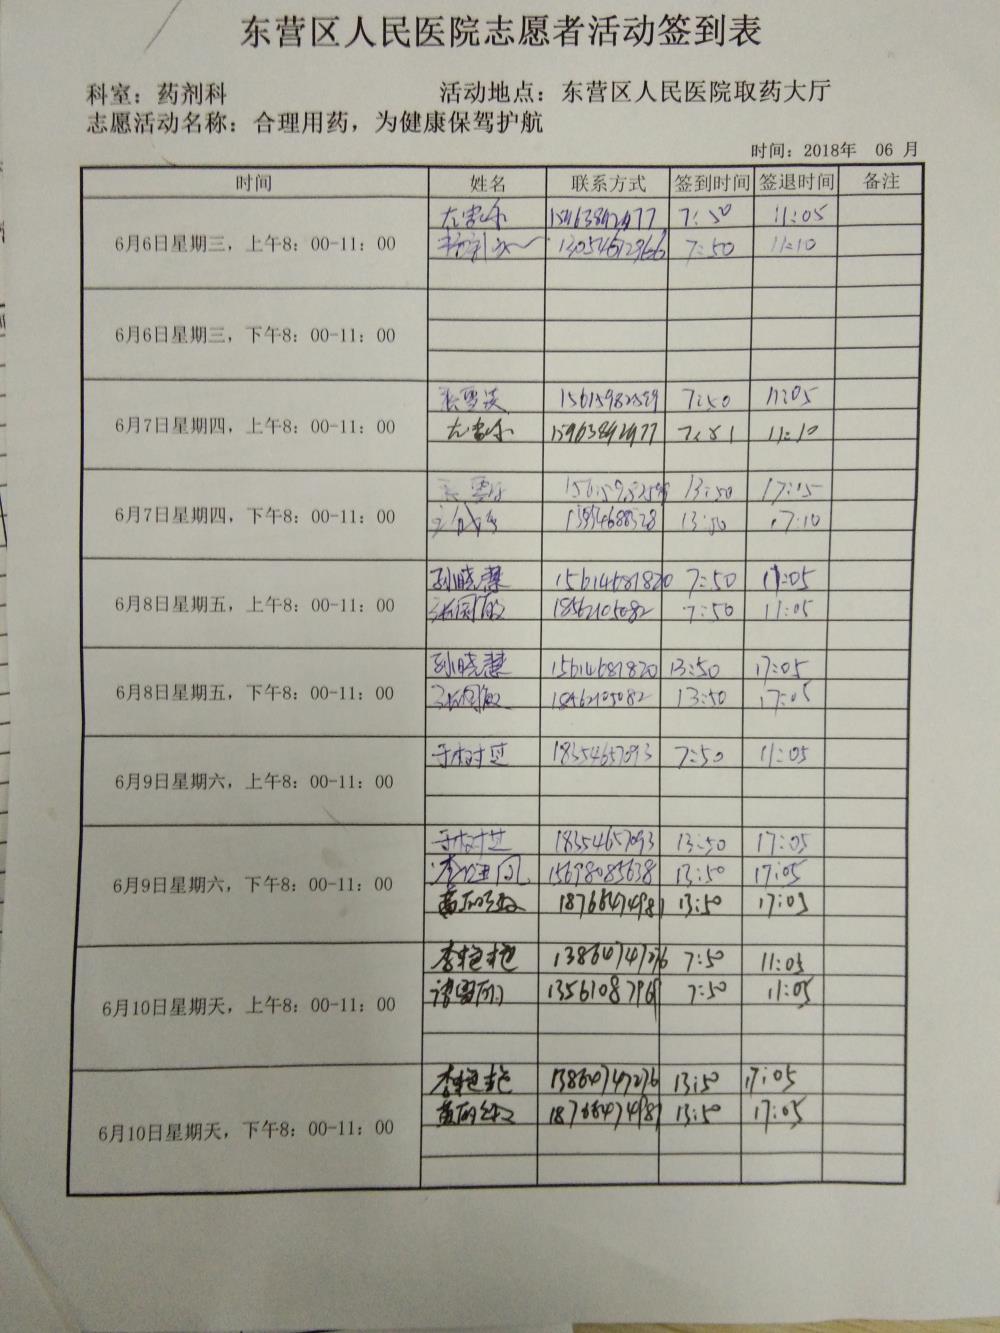 东营区人民医院志愿者活动签到表
科室：药剂科 活动地点：东营区人民医院取药大厅
志愿活动名称：合理用药，为健康保驾护航
时间：2018年 06 月
时间 姓名 联系方式 签到时间 签退时间 备注
7:50 11:05
6月6日星期三，上午8：00-11：00
13054612966 7:50 11:10
6月6日星期三，下午8：00-11：00
15615982599 7:50 11:05
6月7日星期四，上午8：00-11：00
11:10
13:50 17:15
6月7日星期四，下午8：00-11：00
13:50 17:10
孙晓慧 15614681820 7:50 11:05
6月8日星期五，上午8：00-11：00
18562105082 7:50 11:05
孙晓慧 15614681820 13:50 17:05
6月8日星期五，下午8：00-11：00
18562105082 13:50 17:05
18354657093 7:50 11:05
6月9日星期六，上午8：00-11：00
18354657093 13:50 17:05
15698085638 13:50 17:05
6月9日星期六，下午8：00-11：00
18766474981 13:50 17:05
李艳艳 13864747276 7:50 11:05
6月10日星期天，上午8：00-11：00
13561087969 7:50 11:05
李艳艳 13864747276 13:50 17:05
18766474981 13:50 17:05
6月10日星期天，下午8：00-11：00